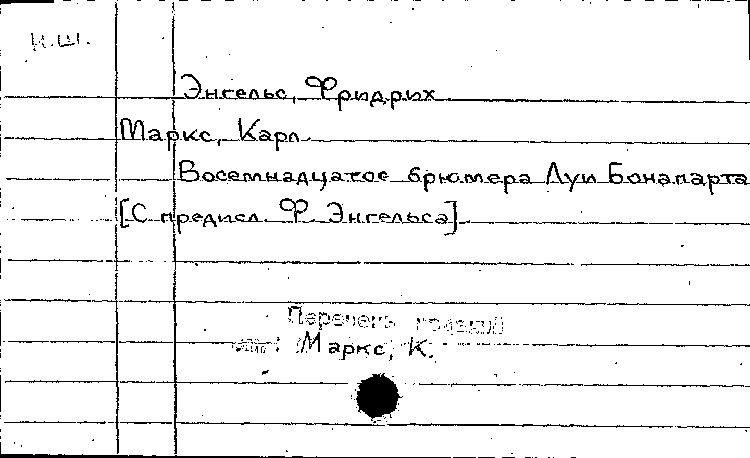 И.Ш.
Энгельс, Фридрих
Маркс, Карл
Восемнадцатое брюмера Луи Бонапарта
[С предисл. Ф. Энгельса]
Перечень изданий
см: Маркс, К.